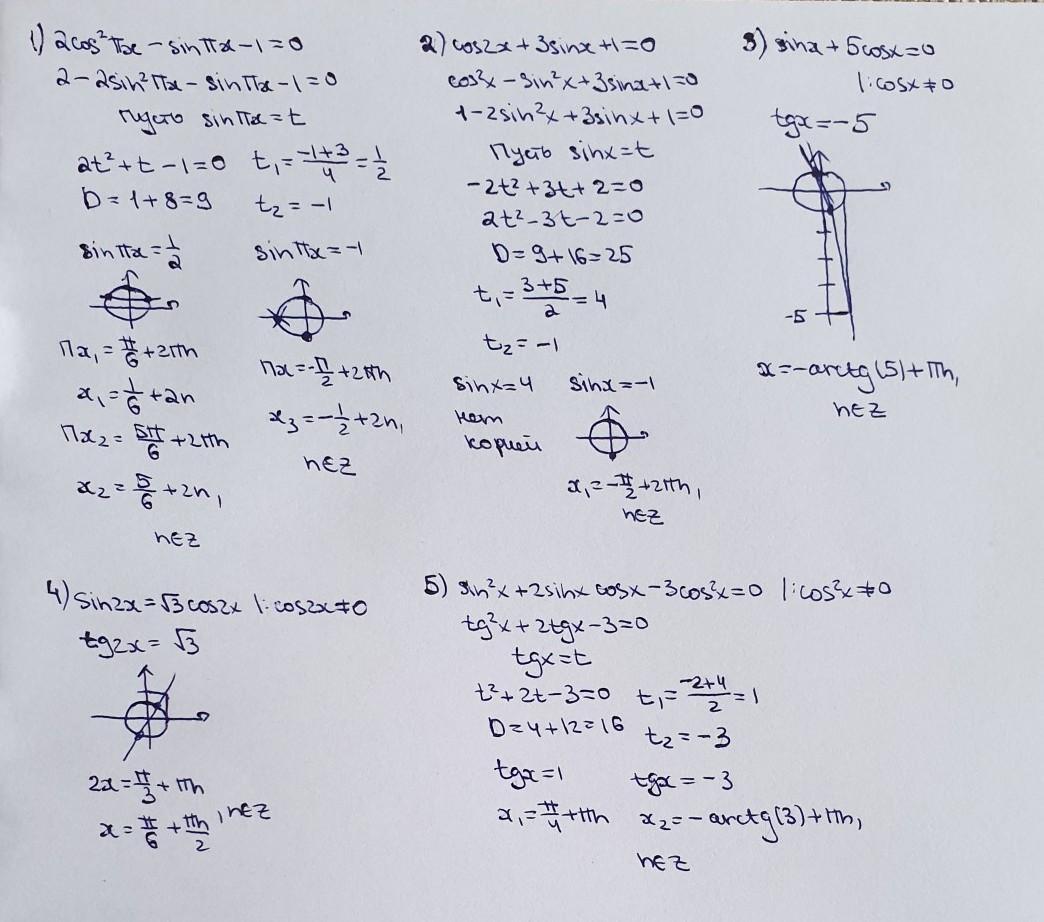 1) 2cos²πx − sinπx − 1 = 0
2 − 2sin²πx − sinπx − 1 = 0
Пусть sinπx = t
2t² + t − 1 = 0 t₁ = (−1+3)/4 = 1/2
D = 1 + 8 = 9 t₂ = −1
sinπx = 1/2 sinπx = −1
πx₁ = π/6 + 2πn
x₁ = 1/6 + 2n
πx₂ = 5π/6 + 2πn
x₂ = 5/6 + 2n,
n∈Z
πx = −π/2 + 2πn
x₃ = −1/2 + 2n,
n∈Z
2) cos2x + 3sinx + 1 = 0
cos²x − sin²x + 3sinx + 1 = 0
1 − 2sin²x + 3sinx + 1 = 0
Пусть sinx = t
−2t² + 3t + 2 = 0
2t² − 3t − 2 = 0
D = 9 + 16 = 25
t₁ = (3+5)/2 = 4
t₂ = −1
sinx = 4 sinx = −1
нет
корней
x₁ = −π/2 + 2πn,
n∈Z
3) sinx + 5cosx = 0
|: cosx ≠ 0
tgx = −5
-5
x = −arctg(5) + πn,
n∈Z
4) Sin2x = √3 cos2x |: cos2x ≠ 0
tg2x = √3
2x = π/3 + πn
x = π/6 + πn/2, n∈Z
5) sin²x + 2sinx cosx − 3cos²x = 0 |: cos²x ≠ 0
tg²x + 2tgx − 3 = 0
tgx = t
t² + 2t − 3 = 0 t₁ = (−2+4)/2 = 1
D = 4 + 12 = 16 t₂ = −3
tgx = 1 tgx = −3
x₁ = π/4 + πn x₂ = −arctg(3) + πn,
n∈Z